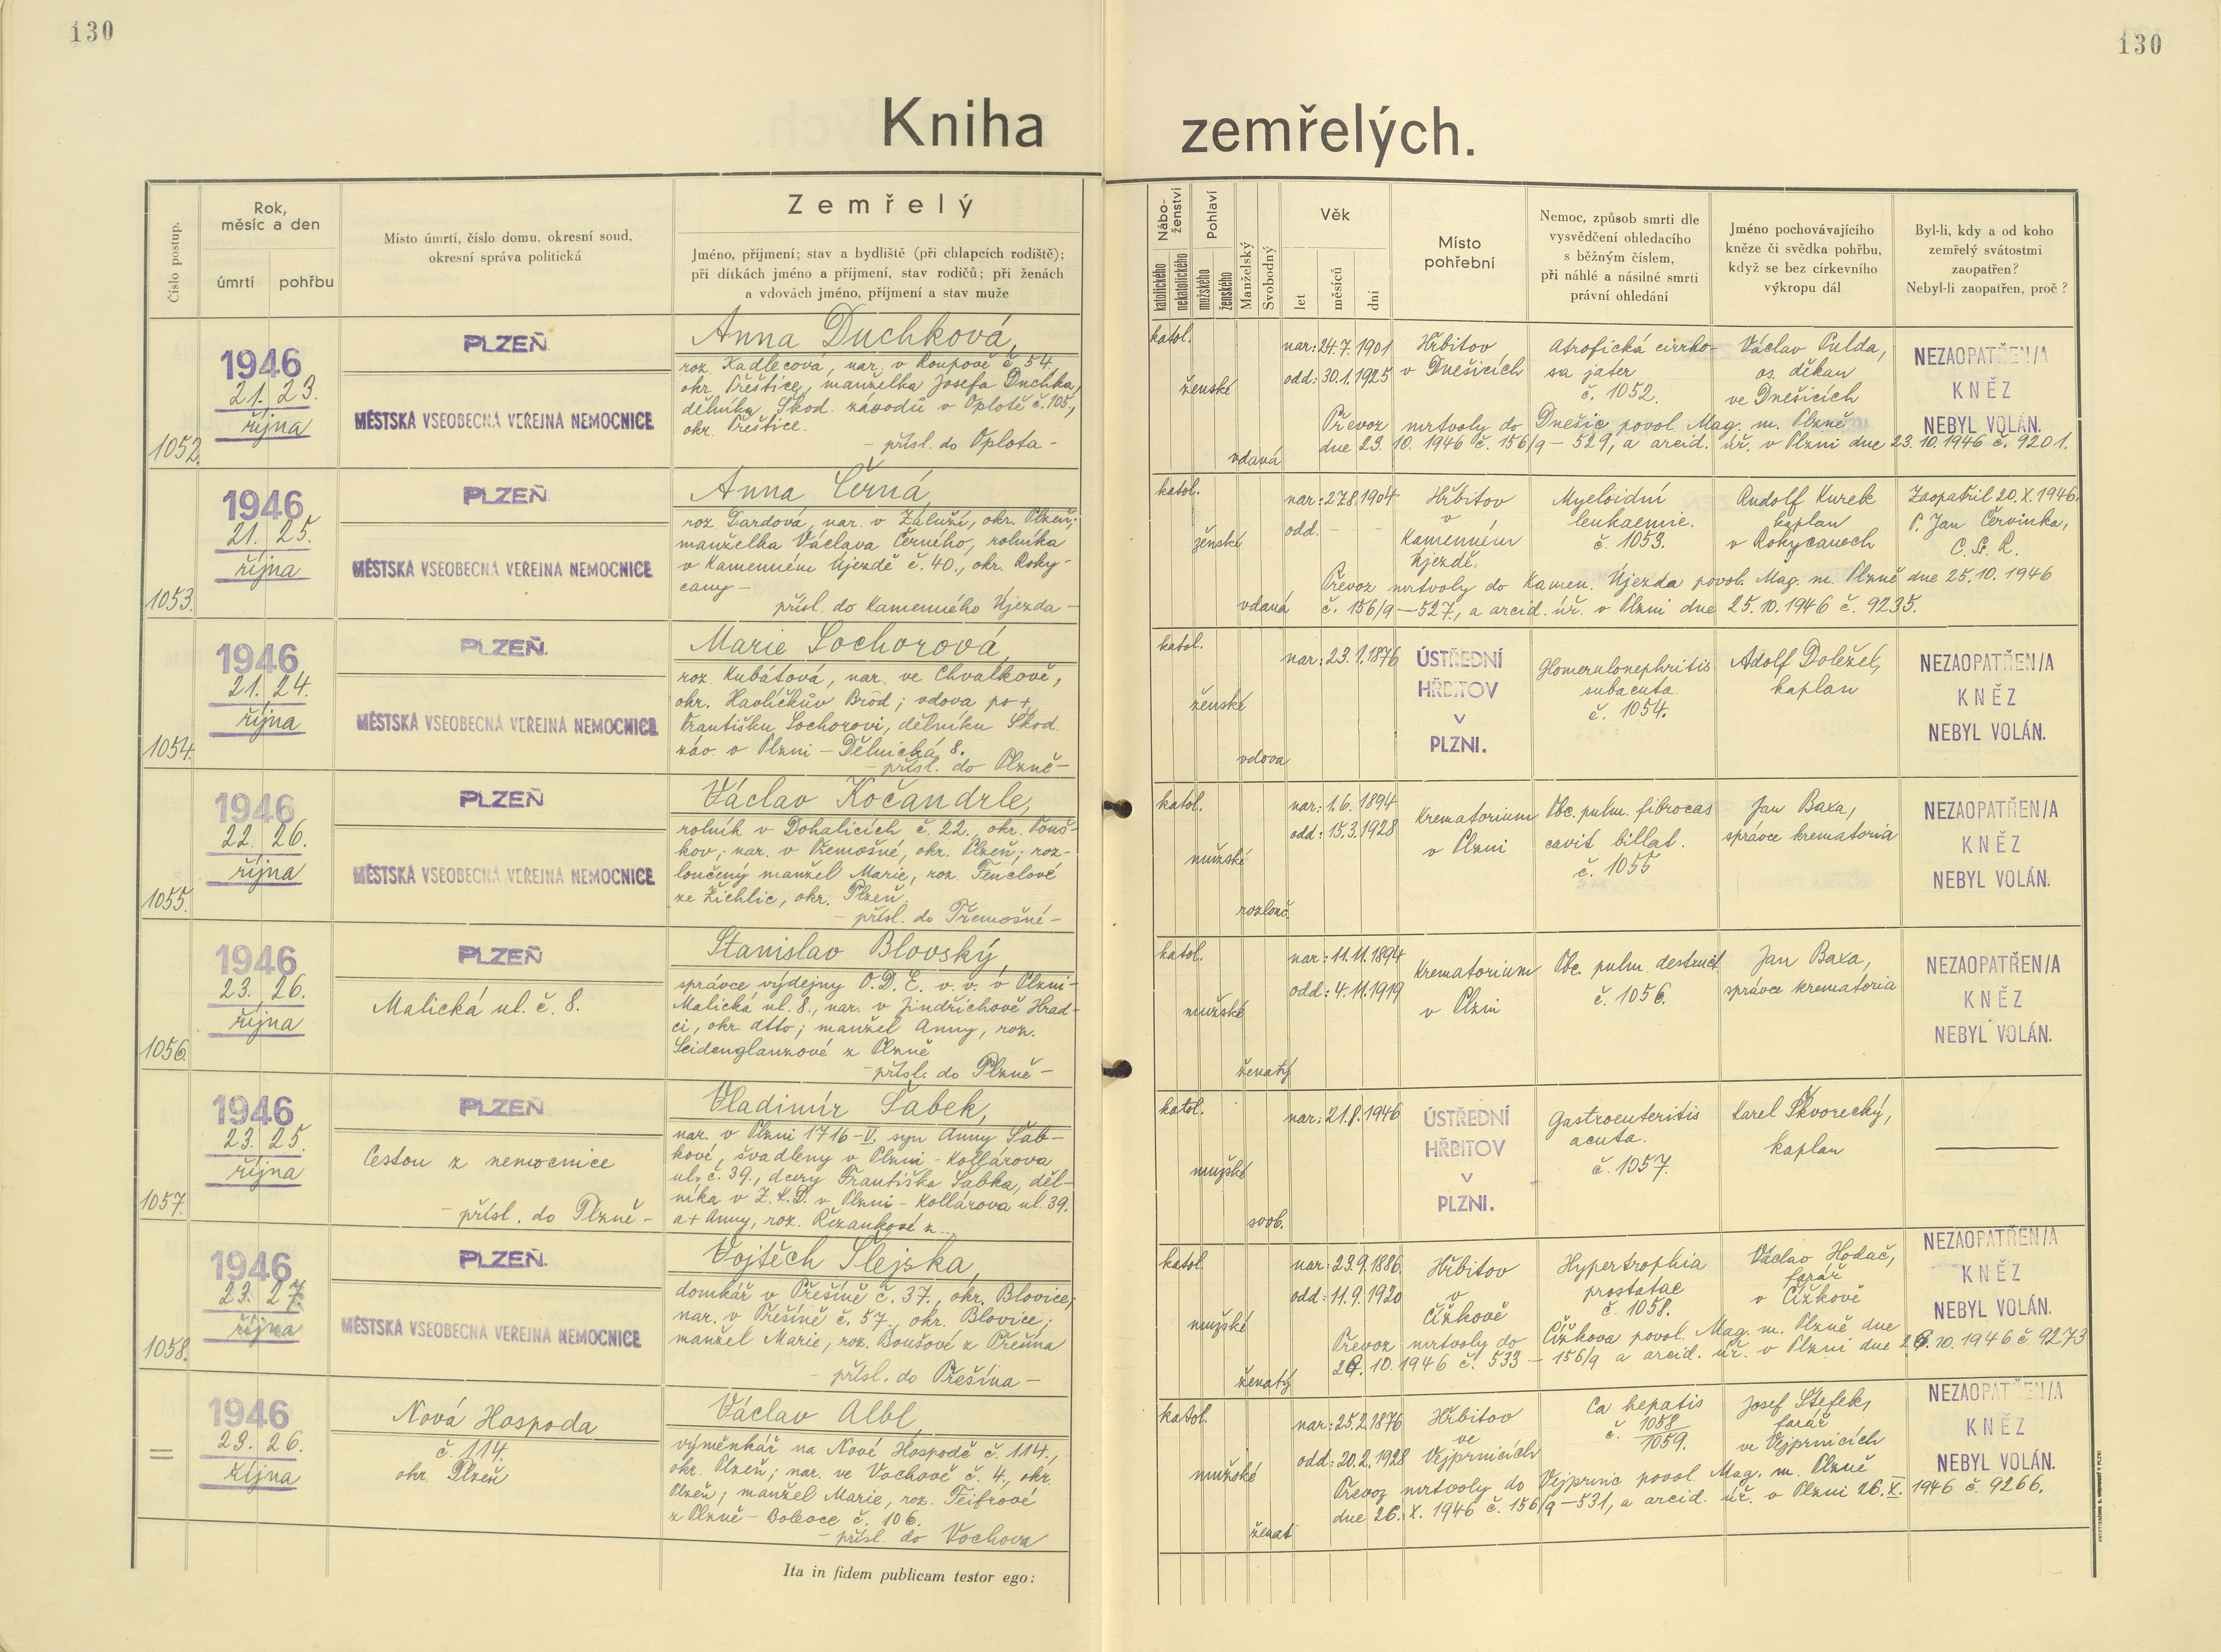 130
130
Kniha zemřelých.
Číslo postup.
Rok,
měsíc a den
úmrtí
pohřbu
Místo úmrtí, číslo domu, okresní soud,
okresní správa politická
Zemřelý
Jméno, příjmení; stav a bydliště (při chlapcích rodiště);
při dítkách jméno a příjmení, stav rodičů; při ženách
a vdovách jméno, příjmení a stav muže
Nábo-
ženství
katolického
nekatolického
Pohlaví
mužského
ženského
Manželský
Svobodný
Věk
let
měsíců
dní
Místo
pohřební
Nemoc, způsob smrti dle
vysvědčení ohledacího
s běžným číslem,
při náhlé a násilné smrti
právní ohledání
Jméno pochovávajícího
kněze či svědka pohřbu,
když se bez církevního
výkropu dál
Byl-li, kdy a od koho
zemřelý svátostmi
zaopatřen?
Nebyl-li zaopatřen, proč?
1052.
1946
21. 23.
října
PLZEŇ
MĚSTSKÁ VŠEOBECNÁ VEŘEJNÁ NEMOCNICE
Anna Duchková,
roz. Kadlecová, nar. v Roupově č 54.
okr. Přeštice, manželka Josefa Duchka,
dělníka Škod. závodů v Oplotě č. 105,
okr. Přeštice.
- přísl. do Oplota -
katol.
ženské
vdaná
nar: 24.7.1901
odd: 30.1.1925
Hřbitov
v Dnešicích
Atrofická cirrho-
sa jater
č. 1052.
Václav Pulda,
os. děkan
ve Dnešicích
NEZAOPATŘEN/A
KNĚZ
NEBYL VOLÁN.
Převoz mrtvoly do Dnešic povol. Mag. m. Plzně
dne 23. 10. 1946 č. 156/9 - 529, a arcid. úř. v Plzni dne 23.10.1946 č. 9201.
1053.
1946
21. 25.
října
PLZEŇ
MĚSTSKÁ VŠEOBECNÁ VEŘEJNÁ NEMOCNICE
Anna Černá,
roz. Dardová, nar. v Záluží, okr. Plzeň;
manželka Václava Černého, rolníka
v Kamenném Újezdě č. 40., okr. Roky-
cany -
přísl. do Kamenného Újezda -
katol.
ženské
vdaná
nar: 27.8.1904
odd. - - -
Hřbitov
v
Kamenném
Újezdě.
Myeloidní
leukaemie.
č. 1053.
Rudolf Kurek
kaplan
v Rokycanech
Zaopatřil 20.X.1946.
P. Jan Červinka,
C.Ss.R.
Převoz mrtvoly do Kamen. Újezda povol. Mag. m. Plzně dne 25.10.1946
č. 156/9 - 527, a arcid. úř. v Plzni dne 25.10.1946 č. 9235.
1054.
1946
21. 24.
října
PLZEŇ.
MĚSTSKÁ VŠEOBECNÁ VEŘEJNÁ NEMOCNICE
Marie Sochorová,
roz. Kubátová, nar. ve Chválkově,
okr. Havlíčkův Brod; vdova po +
Františku Sochorovi, dělníku Škod.
záv. v Plzni - Dělnická 8.
- přísl. do Plzně -
katol.
ženské
vdova
nar: 23.1.1876
ÚSTŘEDNÍ
HŘBITOV
V
PLZNI.
Glomerulonephritis
subacuta.
č. 1054.
Adolf Doležel,
kaplan
NEZAOPATŘEN/A
KNĚZ
NEBYL VOLÁN.
1055.
1946
22. 26.
října
PLZEŇ
MĚSTSKÁ VŠEOBECNÁ VEŘEJNÁ NEMOCNICE
Václav Kočandrle,
rolník v Dohalicích č. 22., okr. Touš-
kov; nar. v Třemošné, okr. Plzeň; roz-
loučený manžel Marie, roz. Fenclové
ze Žichlic, okr. Plzeň.
- přísl. do Třemošné -
katol.
mužské
rozlouč.
nar: 1.6.1894
odd: 15.3.1928
Krematorium
v Plzni
Tbc. pulm. fibrocas
cavit billat.
č. 1055
Jan Baxa,
správce krematoria
NEZAOPATŘEN/A
KNĚZ
NEBYL VOLÁN.
1056.
1946
23. 26.
října
PLZEŇ
Malická ul. č. 8.
Stanislav Blovský,
správce výdejny O.D.E. v. v. v Plzni -
Malická ul. 8., nar. v Jindřichově Hrad-
ci, okr. dtto; manžel Anny, roz.
Seidenglanzové z Plzně
- přísl. do Plzně -
katol.
mužské
ženatý
nar: 11.11.1894
odd: 4.11.1919
Krematorium
v Plzni
Tbc. pulm. destruct.
č. 1056.
Jan Baxa,
správce krematoria
NEZAOPATŘEN/A
KNĚZ
NEBYL VOLÁN.
1057.
1946
23. 25.
října
PLZEŇ
Cestou z nemocnice
- přísl. do Plzně -
Vladimír Šabek,
nar. v Plzni 1716-V. syn Anny Šab-
kové, švadleny v Plzni - Kollárova
ul. č. 39., dcery Františka Šabka, děl-
níka v Z.L.D. v Plzni - Kollárova ul. 39.
a + Anny, roz. Řezankové z...
katol.
mužské
svob.
nar: 21.8.1946
ÚSTŘEDNÍ
HŘBITOV
V
PLZNI.
Gastroenteritis
acuta.
č. 1057.
Karel Škvorecký,
kaplan
1058.
1946
23. 27.
října
PLZEŇ.
MĚSTSKÁ VŠEOBECNÁ VEŘEJNÁ NEMOCNICE
Vojtěch Šlejska,
domkář v Přešíně č. 37., okr. Blovice;
nar. v Přešíně č. 57., okr. Blovice;
manžel Marie, roz. Boušové z Přešína
- přísl. do Přešína -
katol.
mužské
ženatý
nar: 23.9.1886.
odd: 11.9.1920
Hřbitov
v
Čížkově
Hypertrophia
prostatae
č. 1058.
Václav Hodač,
farář
v Čížkově
NEZAOPATŘEN/A
KNĚZ
NEBYL VOLÁN.
Převoz mrtvoly do Čížkova povol. Mag. m. Plzně dne
26.10.1946 č. 533 - 156/9 a arcid. úř. v Plzni dne 26.10.1946 č 9273
=
1946
23. 26.
října
Nová Hospoda
č. 114.
okr. Plzeň
Václav Albl,
výměnkář na Nové Hospodě č. 114.,
okr. Plzeň; nar. ve Vochově č. 4., okr.
Plzeň; manžel Marie, roz. Teifrové
z Plzně - Bolevce č. 106.
- přísl. do Vochova
katol.
mužské
ženat
nar: 25.2.1876
odd: 20.2.1928
Hřbitov
ve
Vejprnicích
Ca hepatis
č. 1058
1059.
Josef Štefek,
farář
ve Vejprnicích
NEZAOPATŘEN/A
KNĚZ
NEBYL VOLÁN.
Převoz mrtvoly do Vejprnic povol. Mag. m. Plzně
dne 26. X. 1946 č. 156/9 - 531, a arcid. úř. v Plzni 26. X. 1946 č. 9266.
Ita in fidem publicam testor ego: